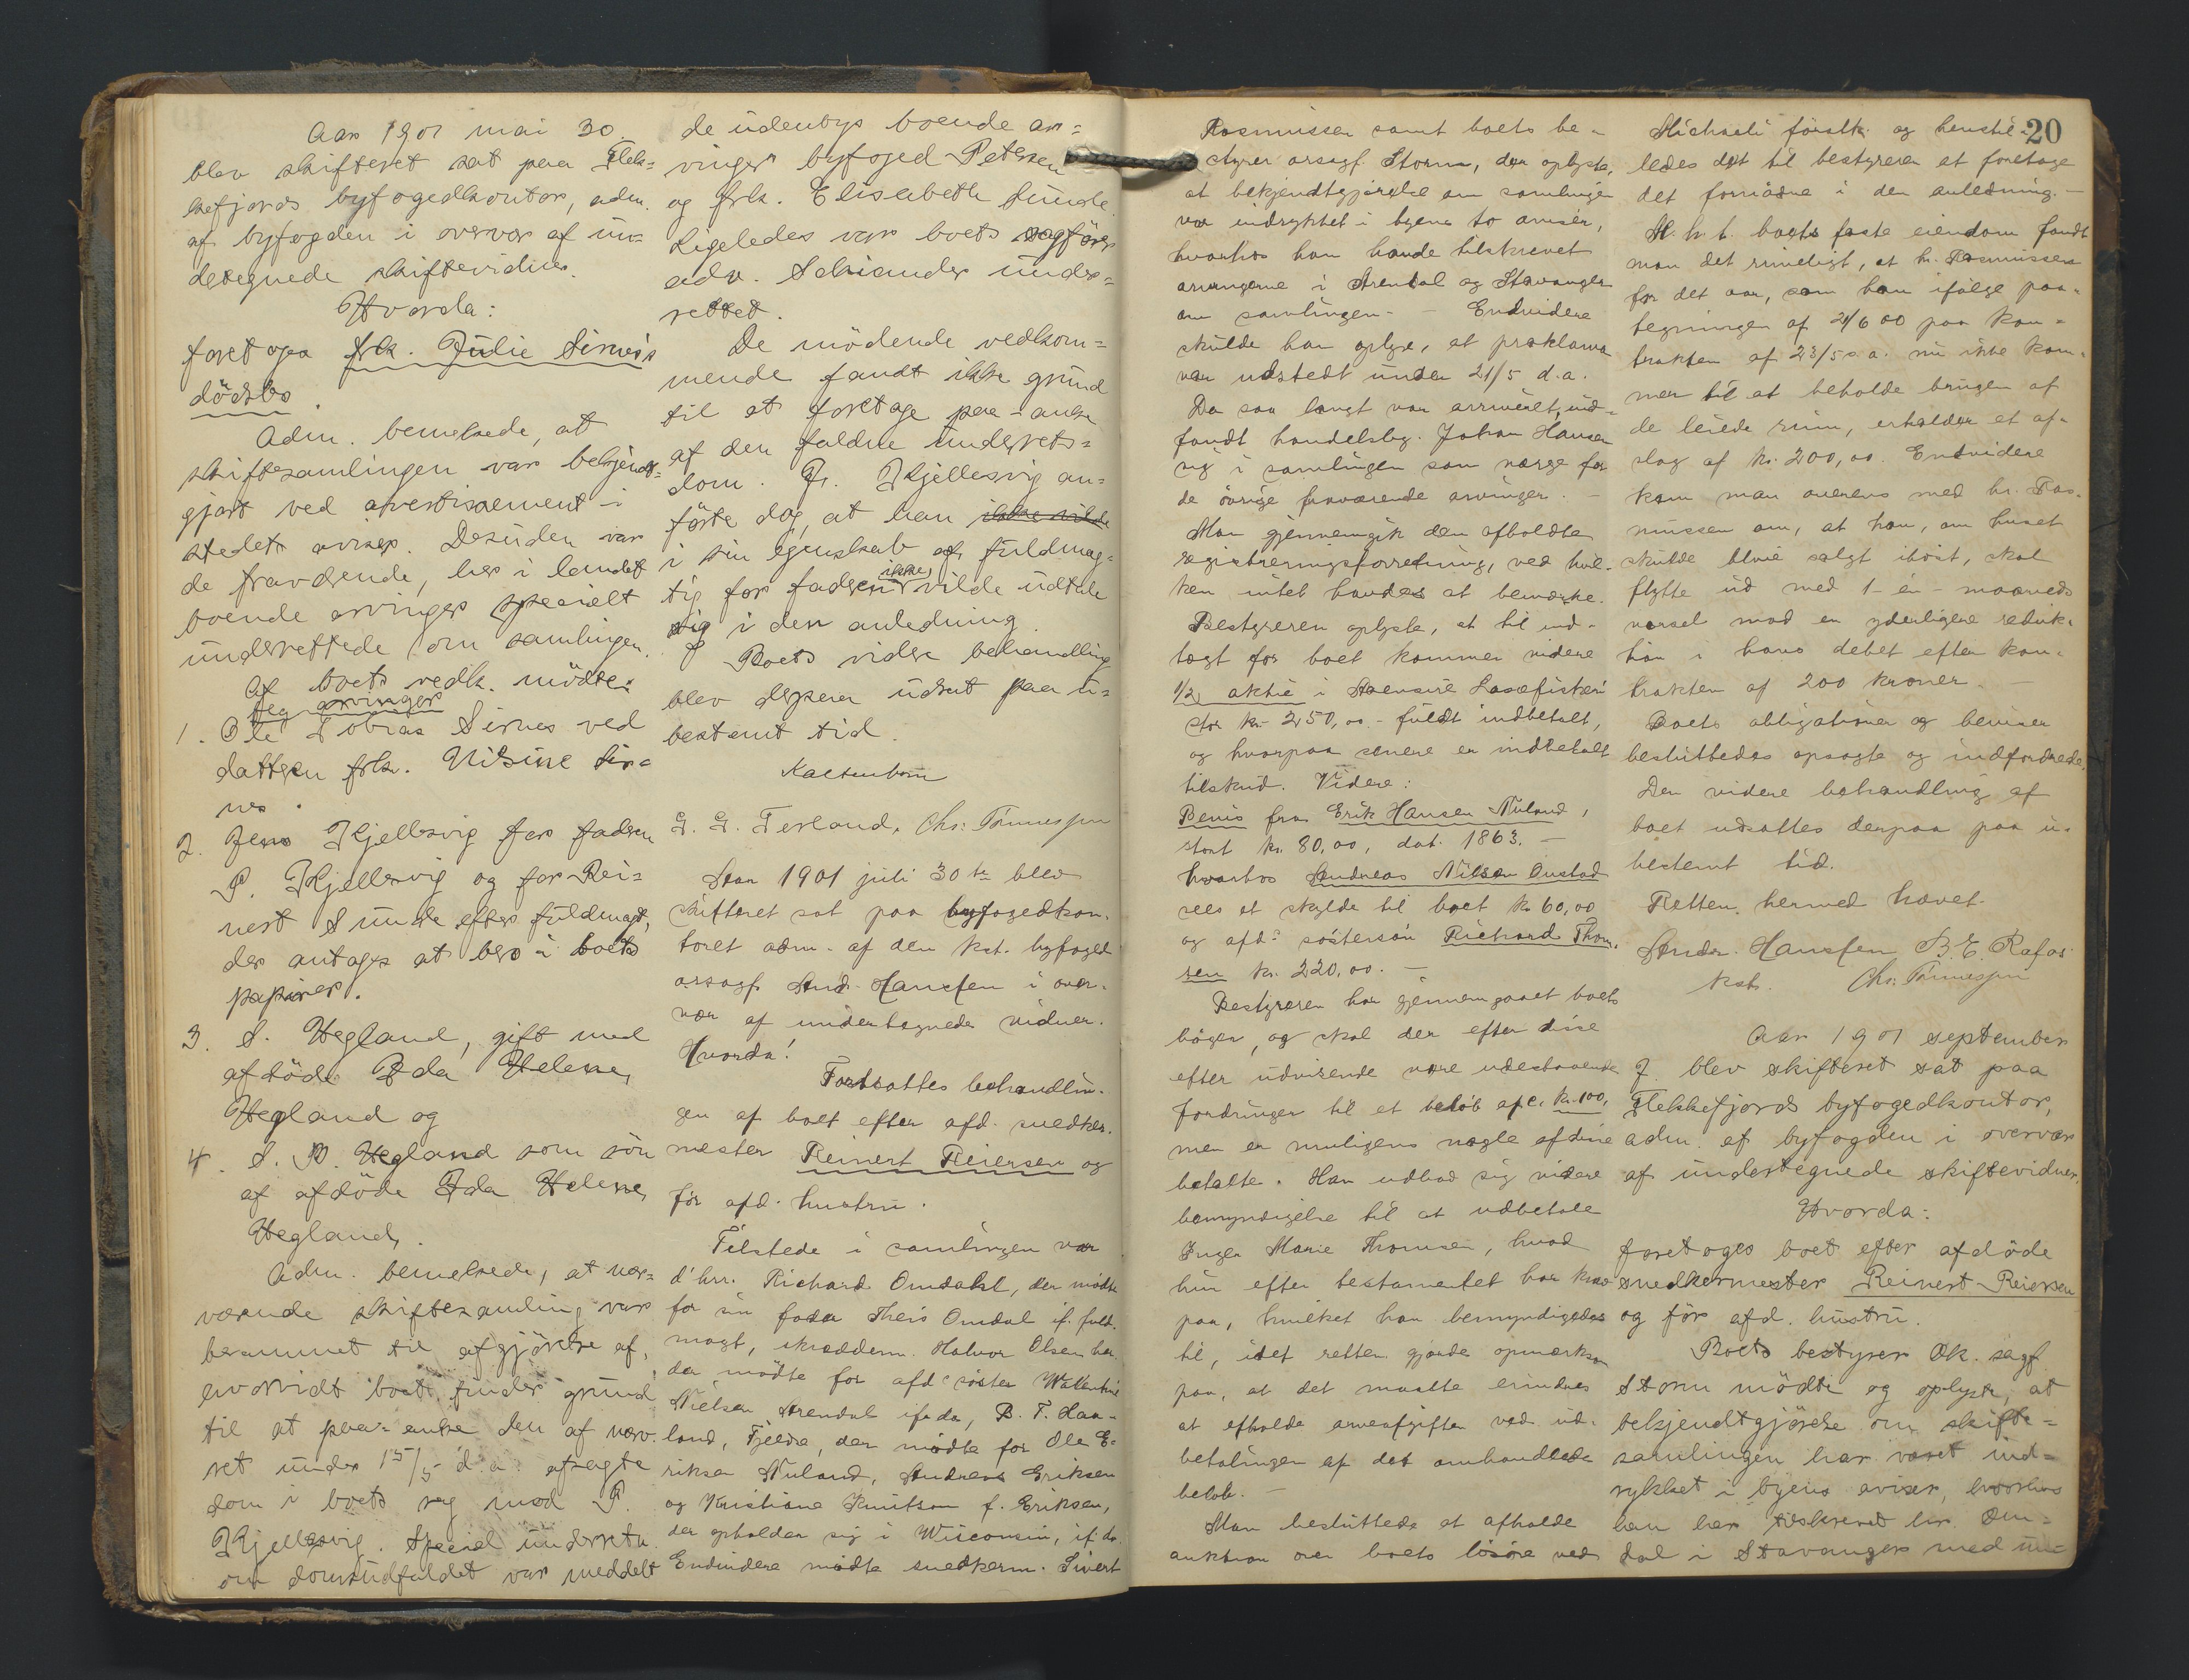 Aar 1901 mai 30.
blev skifteret sat paa Flek-
kefjords byfogedkontor, adm.
af byfogden i overvær af un-
dertegnede skiftevidner.
Hvorda:
foretoges frk. Julie Sirnes's
dödsbo.
Adm. bemerkede, at
skiftesamlingen var bekjendt-
gjort ved avertissement i
stedets aviser. Desuden var
de fraværende, her i landet
boende arvinger specielt
underrettede om samlingen.
Af boets vedk. mödte:
som arvinger
1. Ole Tobias Sirnes ved
datteren frk. Nilsine Sir-
nes.
2. Jens Kjellesvig for faderen
P. Kjellesvig og for Rei-
nert Sunde efter fuldmagt,
der antages at bero i boets
papirer.
3. S. Hegland, gift med
afdöde Ida Helene
Hegland og
4. S. P. Hegland som sön
af afdöde Ida Helene
Hegland.
Adm. bemerkede, at nær-
værende skiftesamling var
berammet til afgjörelse af,
hvorvidt boet finder grund
til at paa-anke den af underret
ret under 15/5 d.a. afsagte
dom i boets sag mod P.
Kjellesvig. Speciel underretn.
om domsudfaldet var meddelt
de udenbys boende ar-
vinger byfoged Petersen
og frk. Elisabeth Sunde.
Ligeledes var boets sagförer
adv. Schiander under-
rettet.
De mödende vedkom-
mende fandt ikke grund
til at foretage paa-anke
af den faldne underrets-
dom. Hr. Kjellesvig an-
förte dog, at han ikke vilde
i sin egenskab af fuldmæg-
tig for faderen ikke vilde udtale
sig i den anledning.
Boets videre behandling
blev derpaa udsat paa u-
bestemt tid.
Kaltenborn
G. G. Terland. Chr. Tönnessen
Aar 1901 juli 30te blev
skifteret sat paa byfogedkon-
toret adm. af den kst. byfoged
orsagf. And. Hanssen i over-
vær af undertegnede vidner.
Hvorda:
Fortsattes behandlin-
gen af boet efter afd. snedker-
mester Reinert Reiersen og
för afd. hustru.
Tilstede i samlingen var
d'hrr. Richard Omdahl, der mödte
for sin fader Theis Omdal if. fuld-
magt, skrædderm. Halvor Olsen her
der mödte for afd.s söster Wallentine
Nielsen Arendal if. do, B. T. Haa-
land, Fjelds, der mödte for Ole E-
riksen Nuland, Andreas Eriksen
og Kristiane Knutson f. Eriksen,
der opholder sig i Wisconsin, if. do.
Endvidere mödte snedkerm. Sivert
20
Rasmussen samt boets be-
styrer orsagf. Storm, der oplyste,
at bekjendtgjörelse om samlingen
var indrykket i byens to aviser,
hvorhos han havde tilskrevet
arvingerne i Arendal og Stavanger
om samlingen. - Endvidere
skulde han oplyse, at proklama
var udstedt under 21/5 d.a.
Da saa langt var arriveret, ind-
fandt handelsbg. Johan Hansen
sig i samlingen som værge for
de övrige fraværende arvinger. -
Man gjennemgik den afholdte
registreringsforretning, ved hvil-
ken intet havdes at bemærke.
Bestyreren oplyste, at til ind-
tægt for boet kommer videre
1/2 aktie i Svensire Laxefiskeri
stor kr. 250,00 - fuldt indbetalt,
og hvorpaa senere er indbetalt
tilskud. Videre:
Bevis fra Erik Hansen Nuland,
stort kr. 80,00, dat. 1863. -
hvorhos Andreas Nilsen Oustad
sees at skylde til boet kr 60,00
og afd.s söstersön Richard Thom-
sen kr. 220,00. -
Bestyreren har gjennemgaaet boets
böger, og skal der efter disse
efter udvisende være udestaaende
fordringer til et belöb af c. kr. 100,
men er muligens nogle af disse
betalte. Han udbad sig videre
bemyndigelse til at udbetale
Inger Marie Thomsen, hvad
hun efter testamentet har krav
paa, hvilket han bemyndigedes
til, idet retten gjorde opmærksom
paa, at det maatte erindres
at afholde arveafgiften ved ud-
betalingen af det omhandlede
belöb. -
Man besluttede at afholde
auktion over boets lösöre ved
Michaeli förstk. og henstil-
ledes det til bestyreren at foretage
det fornödne i den anledning. -
M. h. t. boets faste eiendom fandt
man det rimeligt, at hr. Rasmussen
for det aar, som han ifölge paa-
tegningen af 21/6 00 paa kon-
trakten af 23/5 s.a. nu ikke kom-
mer til at beholde brugen af
de leiede rum, erholder et af-
slag af kr. 200,00. Endvidere
kom man overens med hr. Ras-
mussen om, at han, om huset
skulde blive solgt ihöst, skal
flytte ud med 1 - en - maaneds
varsel mod en yderligere reduk-
tion i hans debet efter kon-
trakten af 200 kroner. -
Boets obligationer og beviser
besluttedes opsagte og indfordrede.
Den videre behandling af
boet udsattes derpaa paa u-
bestemt tid.
Retten hermed hævet.
Andr. Hanssen B. E. Rafos
kst. Chr. Tönnessen
Aar 1901 september
7. blev skifteret sat paa
Flekkefjords byfogedkontor,
adm. af byfogden i overvær
af undertegnede skiftevidner.
Hvorda:
foretoges boet efter afdöde
snedkermester Reinert Reiersen
og för afd. hustru.
Boets bestyrer Ok. sagf.
Storm mödte og oplyste, at
bekjendtgjörelse om skifte-
samlingen har været ind-
rykket i byens aviser, hvorhos
han har tilskrevet hr. Om-
dal i Stavanger med un-